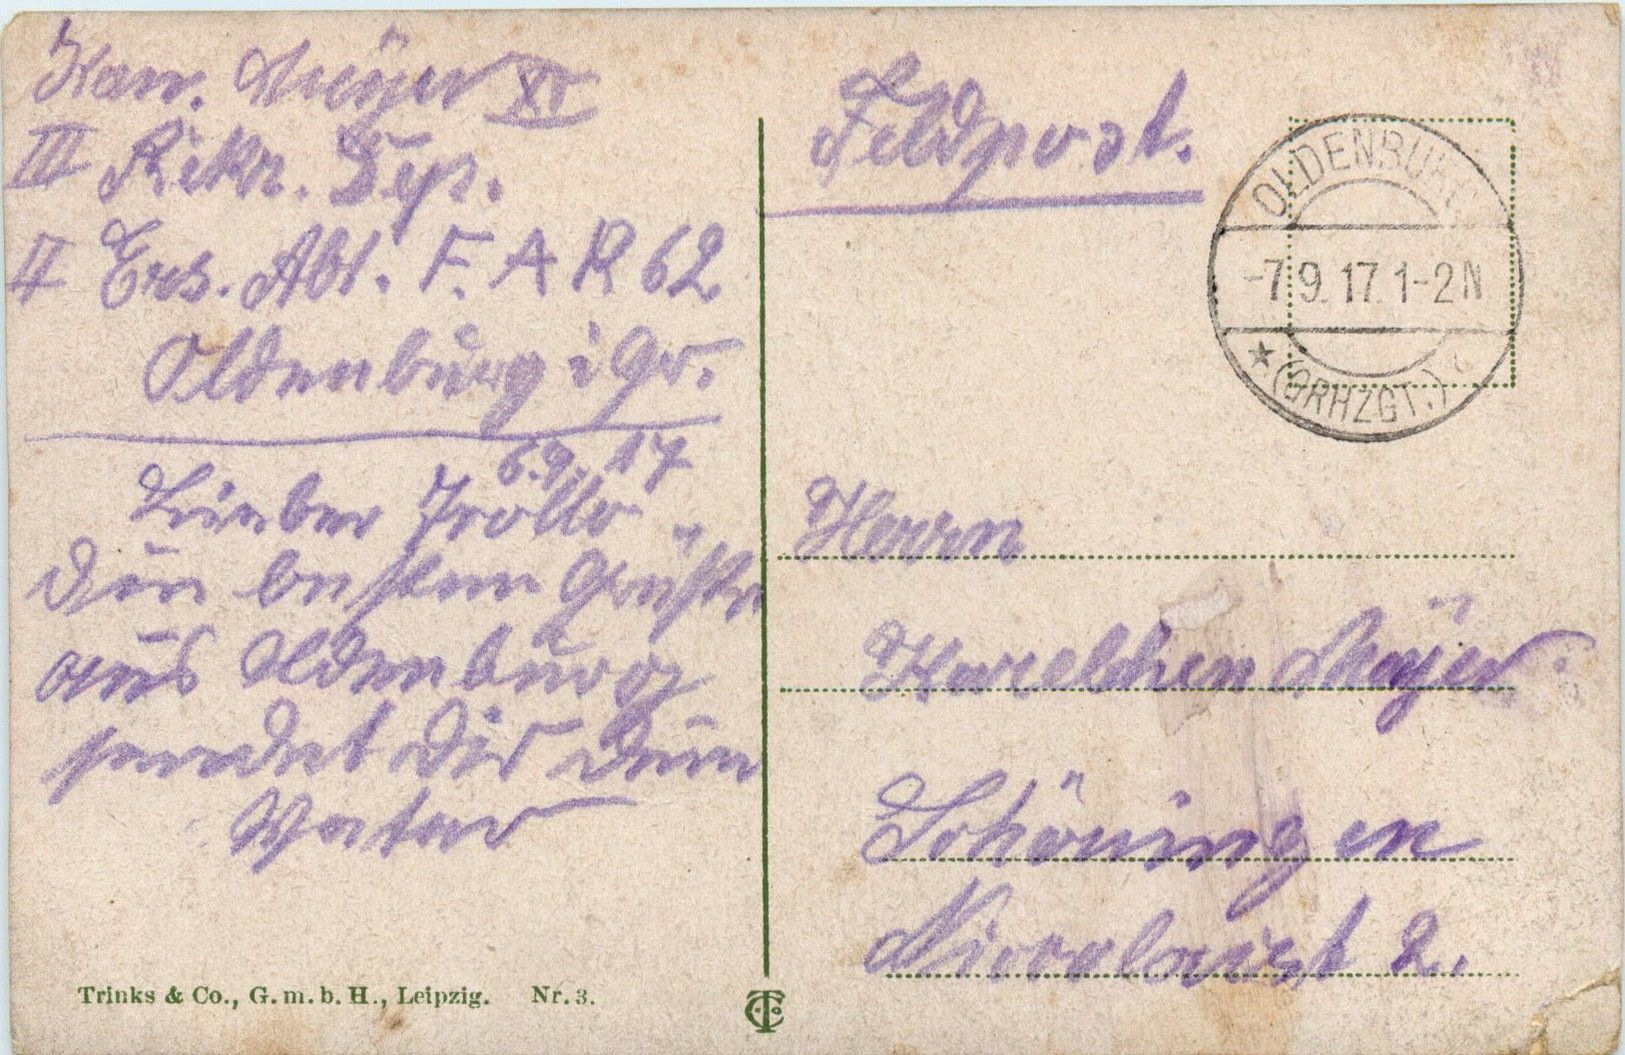 Kan. Meÿer XI
III Rekr. Dep.
II Ers. Abt. F. A R 62
Oldenburg i Gr.
6.9.17
Lieber
die besten Grüße
aus Oldenburg
sendet Dir Dein
Vater
Trinks & Co., G. m. b. H., Leipzig. Nr. 3.
Feldpost.
OLDENBURG
-7.9.17.1-2N
(GRHZGT.)
Herrn
Karelchen Meÿer.
Schöningen
2.